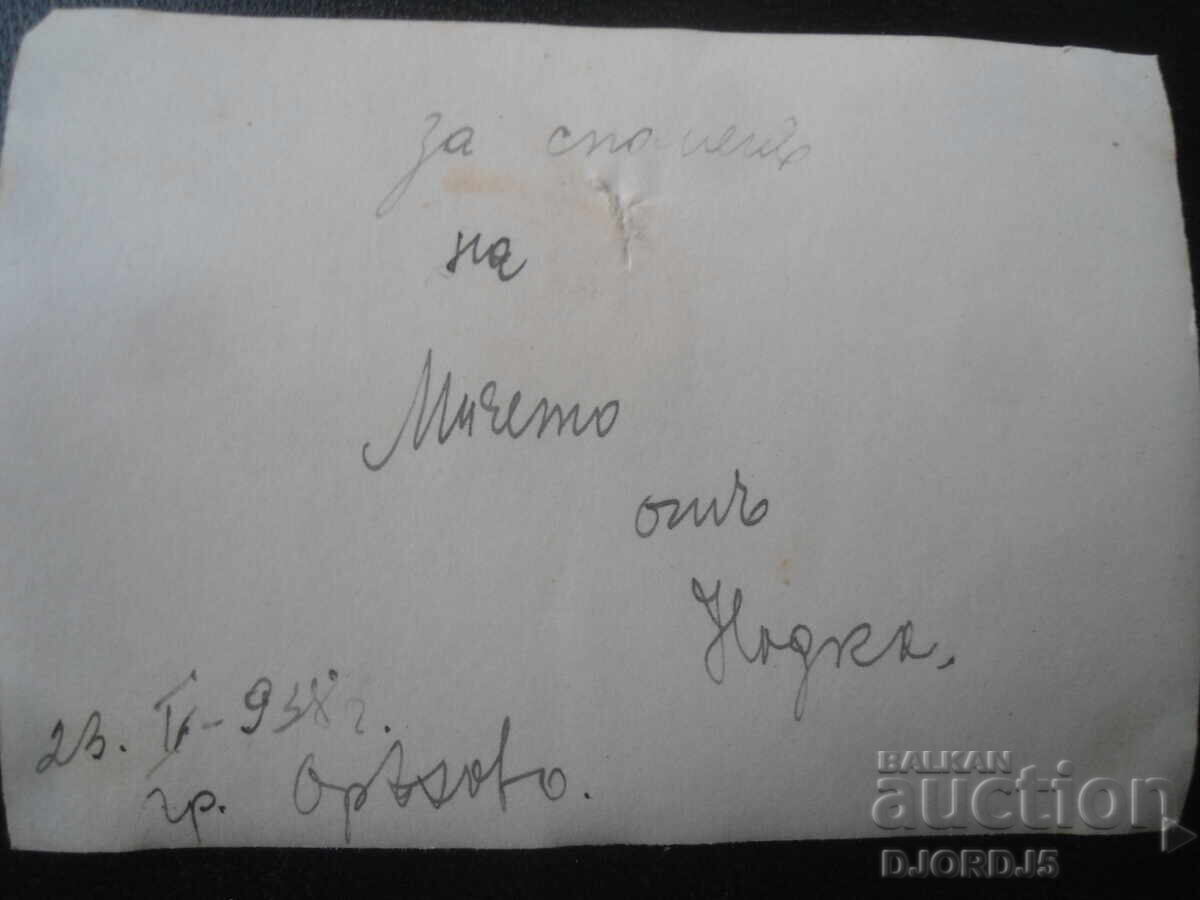 за споменъ
на
Мичето
отъ
Надка.
23. IV - 938 г.
гр. Орѣхово.
BALKAN
auction
DJORDJ5